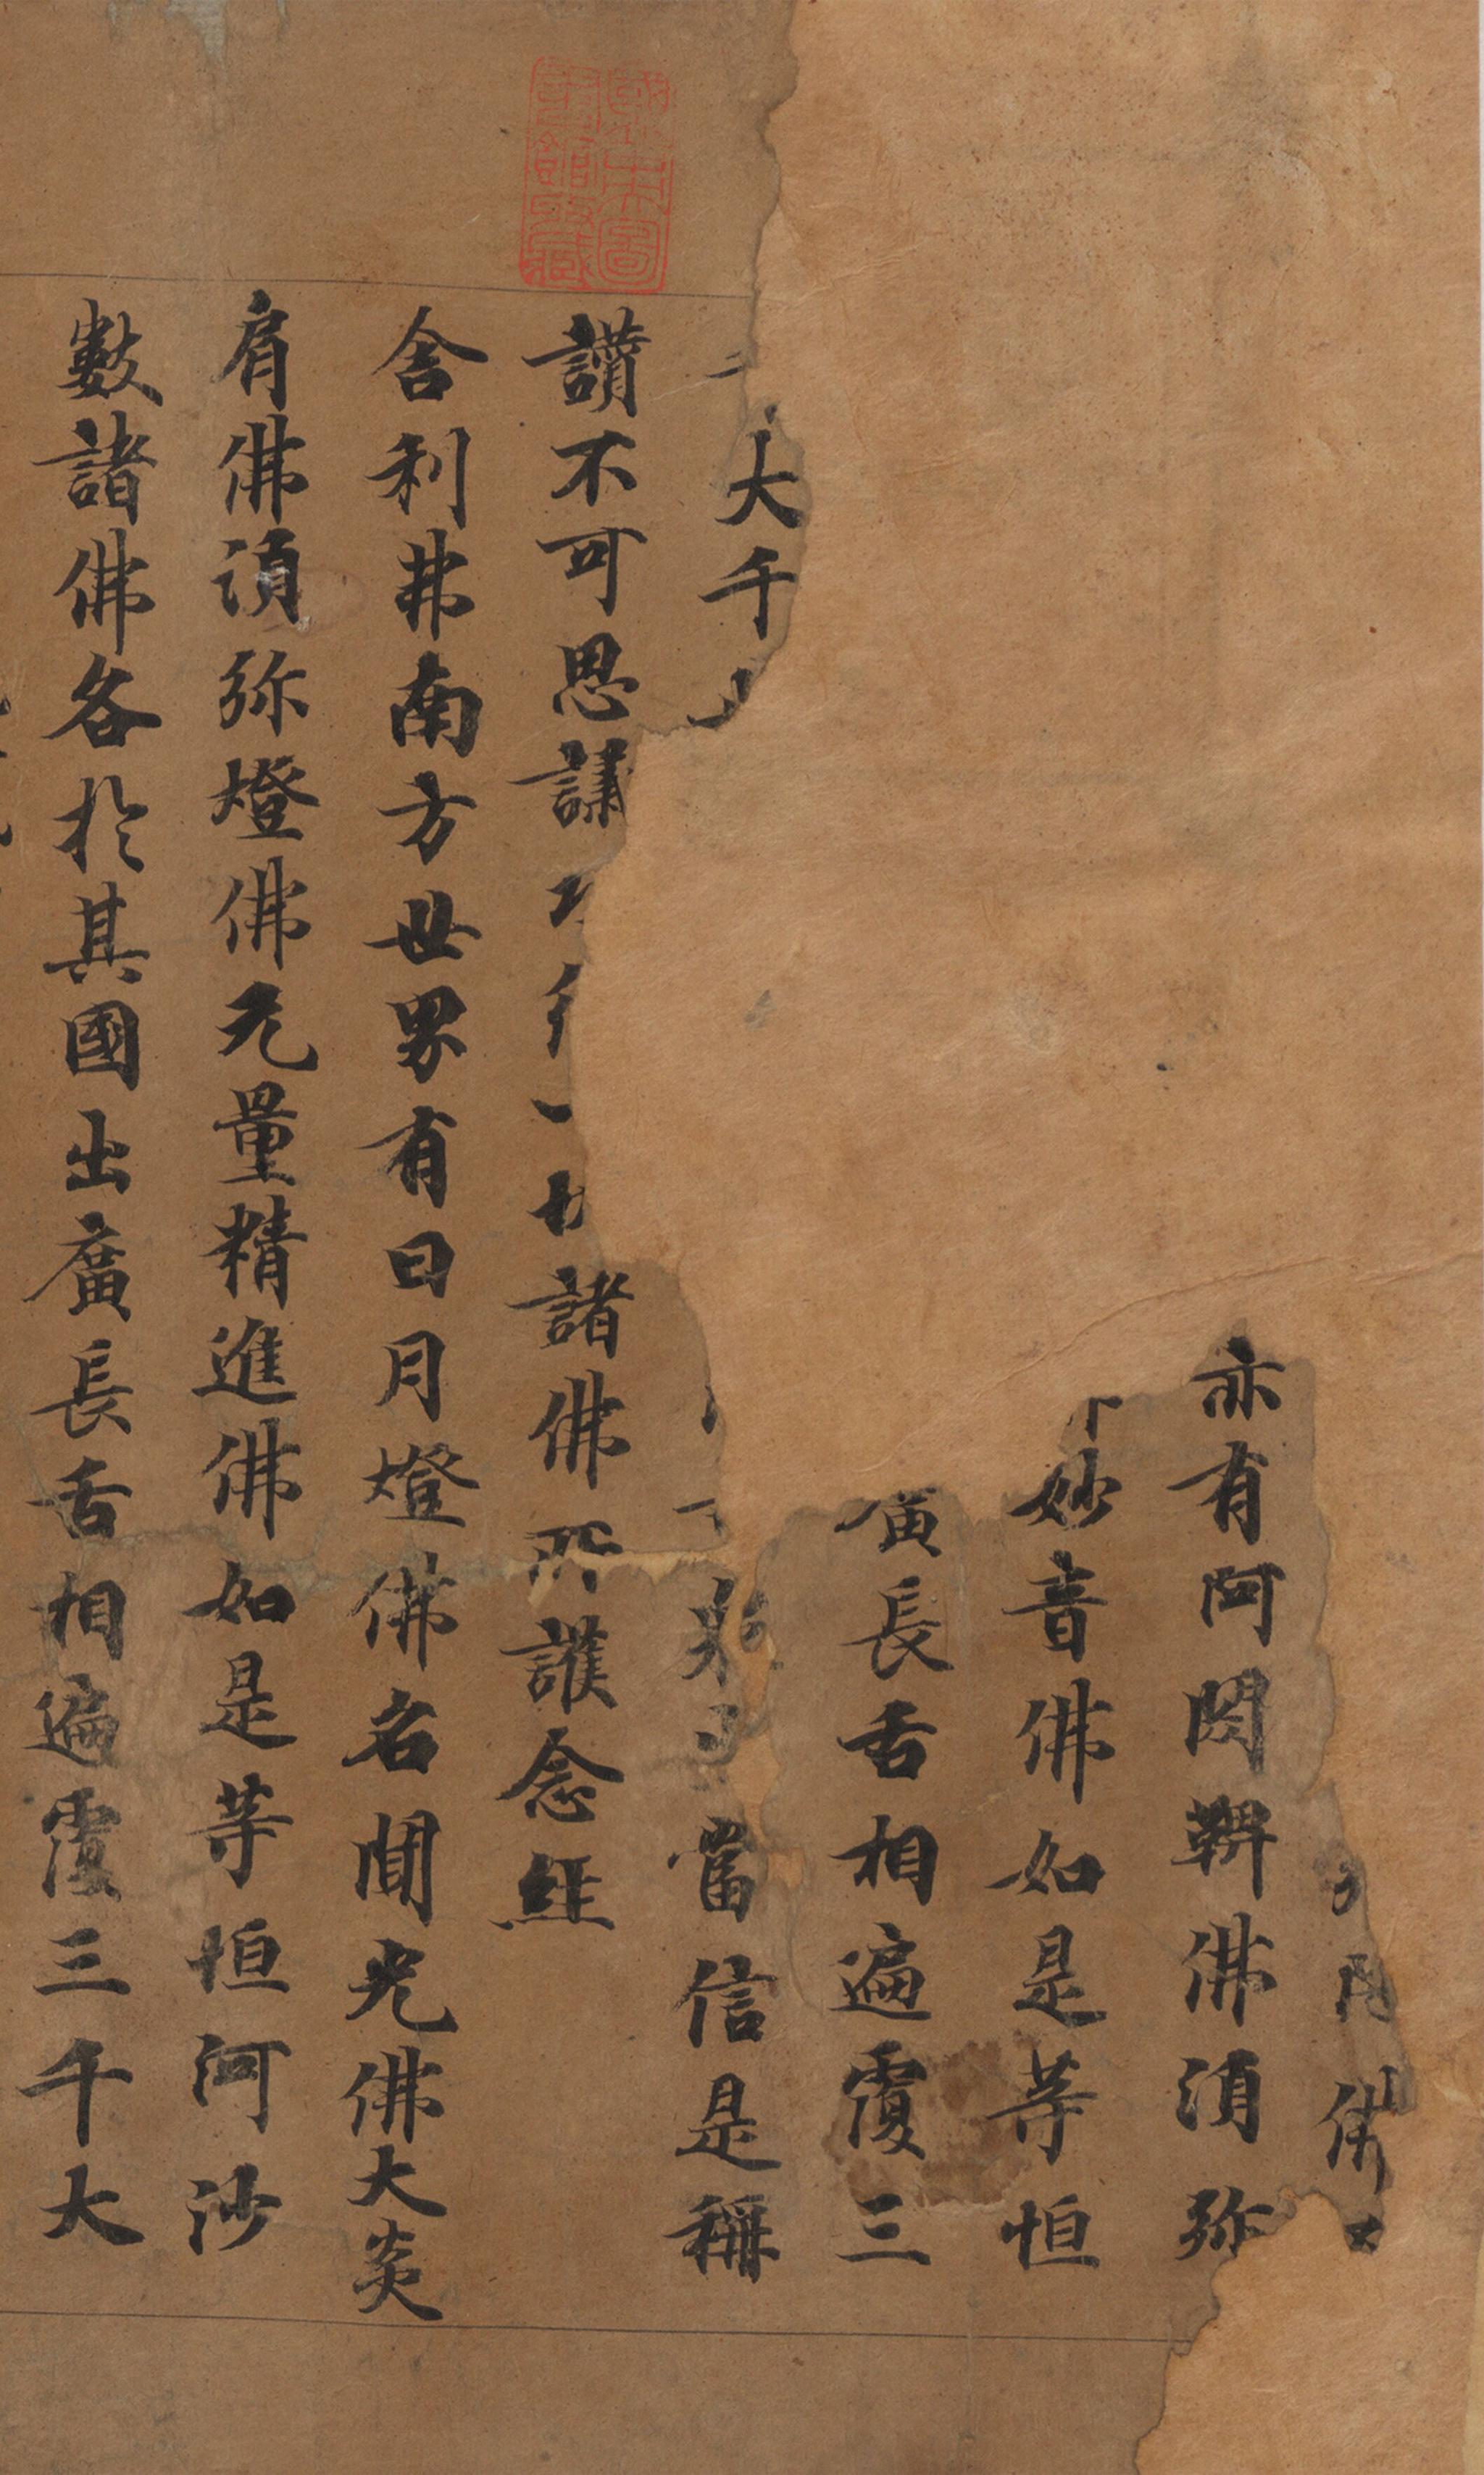 亦有阿閦鞞佛須弥
妙音佛如是等恒
廣長舌相遍覆三
大千
當信是稱
讃不可思議
一切諸佛所護念經
舍利弗南方世界有日月燈佛名聞光佛大炎
肩佛須弥燈佛无量精進佛如是等恒河沙
數諸佛各於其國出廣長舌相遍覆三千大